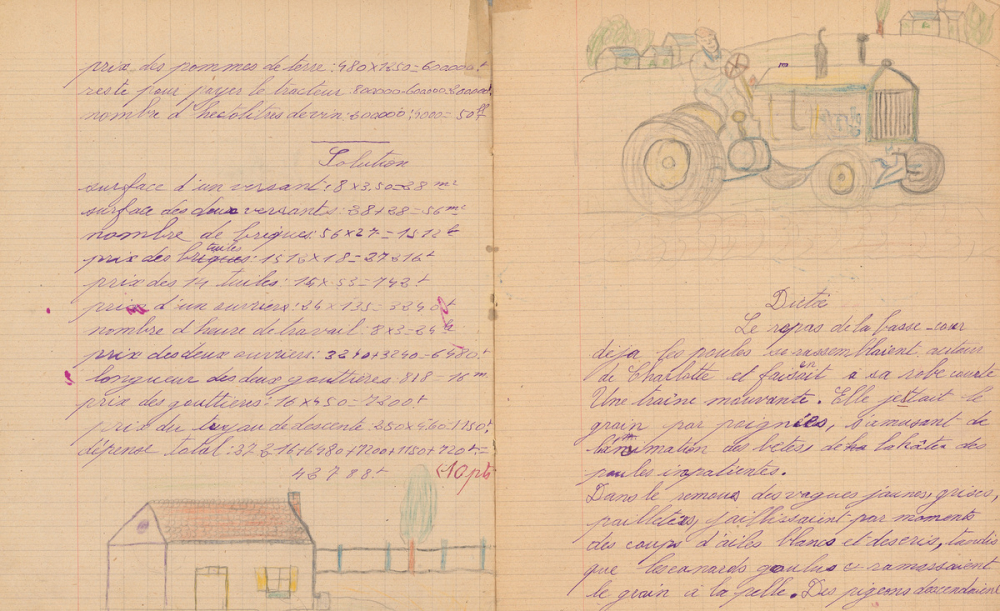 prix des pommes de terre : 480x1250=600000f
reste pour payer le tracteur : 800000-600000=200000f
nombre d'hectolitres de vin : 200000 : 4000 = 50
Solution
surface d'un versant : 8 x 3,50=28 m²
surface des deux versants : 28+28=56 m²
nombre de briques : 56x27=1512
prix des briques tuiles : 1516x18=27216f
prix des 14 tuiles : 14x53=742f
prix d'un ouvriers : 24x135=3240f
nombre d'heure de travail : 8x3=24 h
prix des deux ouvriers : 3240+3240=6480f
longueur des deux gouttières : 8+8=16 m
prix des gouttieres : 16x450=7200f
prix du tuyau de descente : 250x4,60=1150f
dépense total : 27216+6480+7200+1150+720f=
42788f
<10 pts
Dictée
Le repas de la basse-cour
déja les poules se rassemblaient autour
de Charlotte et faisait en a sa robe courte
Une traîne mouvante. Elle jettait le
grain par poignées, s'amusant de
l'animation des bêtes, de la hâte des
poules impatientes.
Dans le remous des vagues jaunes, grises,
pailletées, jaillissaient par moments
des coups d'ailes blancs et des cris, tandis
que les canards goulus ramassaient
le grain à la pelle. Des pigeons descendaient